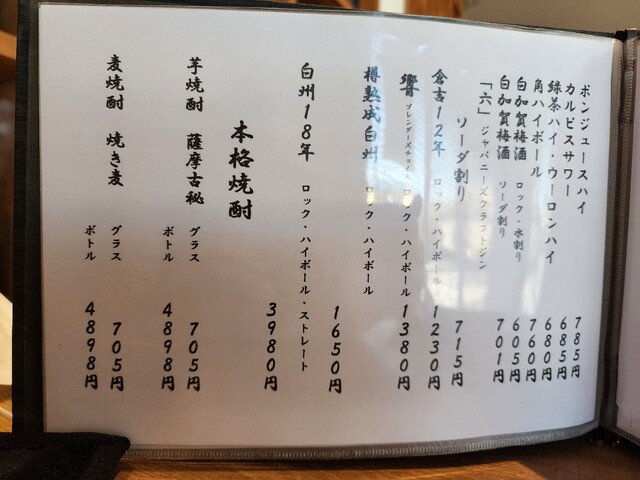 ポンジュースハイ 785円
カルピスサワー 685円
緑茶ハイ・ウーロンハイ 680円
角ハイボール 760円
白加賀梅酒 ロック・水割り 605円
白加賀梅酒 ソーダ割り 701円
「六」ジャパニーズクラフトジン
ソーダ割り 715円
倉吉12年 ロック・ハイボール 1230円
響 ブレンダーズチョイス ロック・ハイボール 1380円
樽熟成白州 ロック・ハイボール
1650円
白州18年 ロック・ハイボール・ストレート
3980円
本格焼酎
芋焼酎 薩摩古秘 グラス 705円
ボトル 4898円
麦焼酎 焼き麦 グラス 705円
ボトル 4898円